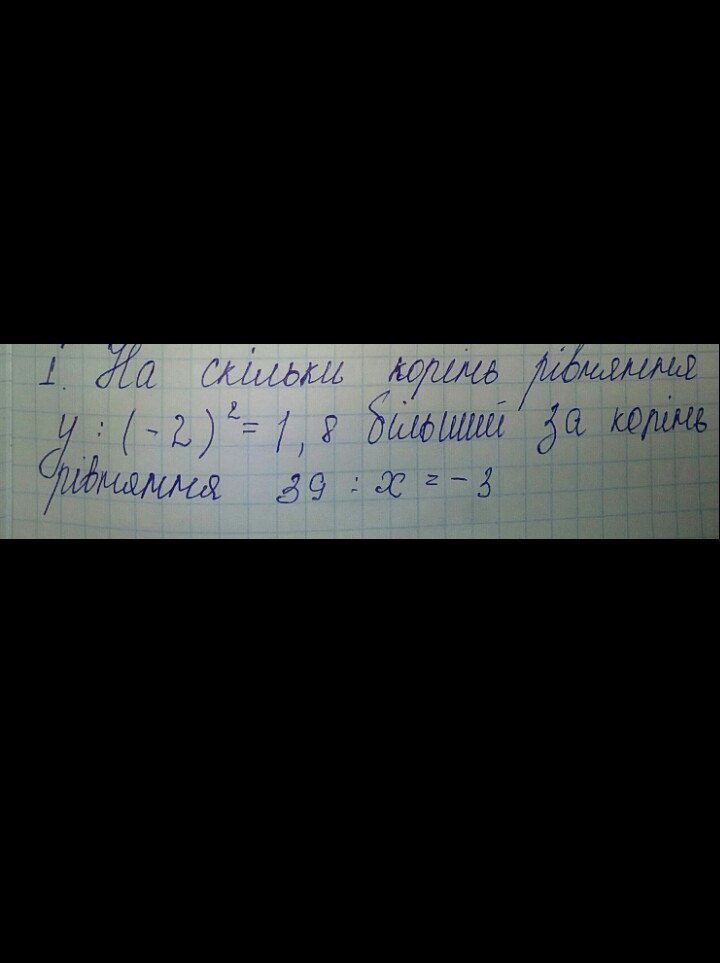 1. На скільки корінь рівняння
y : (-2)² = 1,8 більший за корінь
рівняння 39 : x = -3